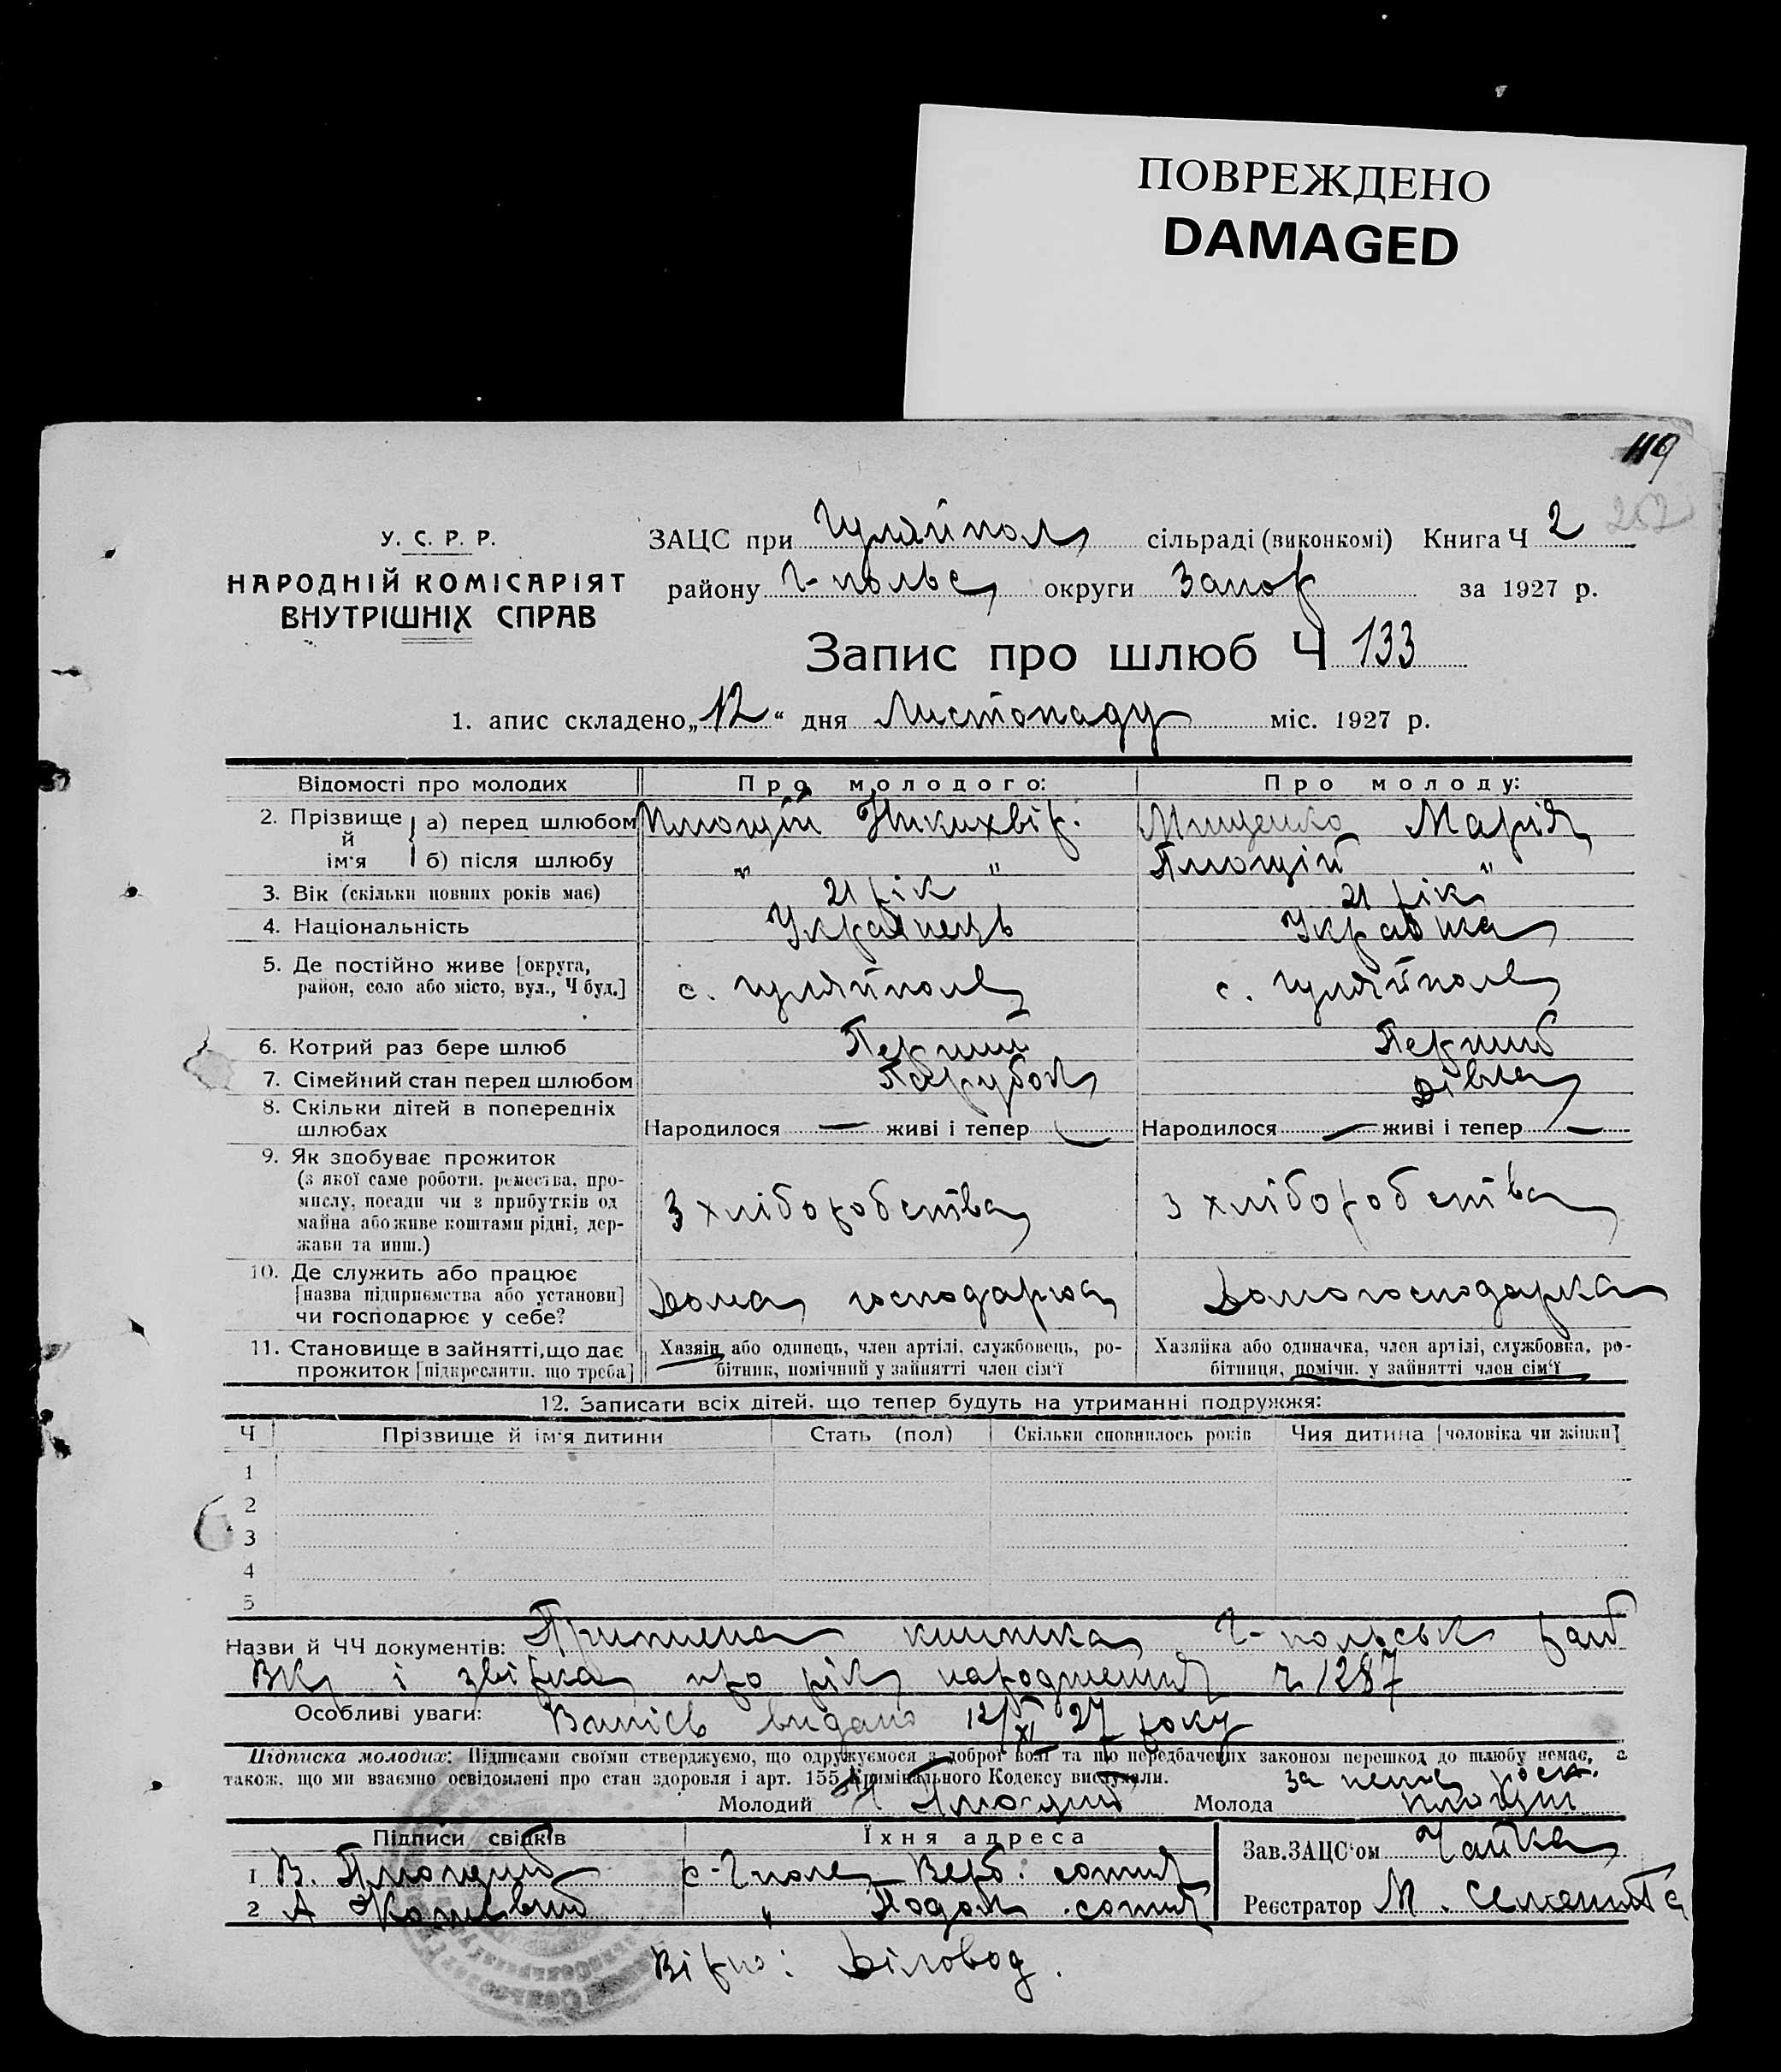 ПОВРЕЖДЕНО
DAMAGED
119
262
У. С. Р. Р.
НАРОДНІЙ КОМІСАРІЯТ
ВНУТРІШНІХ СПРАВ
ЗАЦС при Гуляйпол сільраді (виконкомі) Книга Ч 2
району Г-польс округи Запор за 1927 р.
Запис про шлюб Ч 133
1. апис складено „12“ дня Листопаду міс. 1927 р.
Відомості про молодих Про молодого: Про молоду:
2. Прізвище й ім'я
а) перед шлюбом Плющій Никихвір. Мищенко Марія
б) після шлюбу " " Плющій "
3. Вік (скільки повних років має) 21 рік 21 рік
4. Національність Українець Українка
5. Де постійно живе [округа, район, село або місто, вул., Ч буд.] с. Гуляйполе с. Гуляйполе
6. Котрий раз бере шлюб Перший Перший
7. Сімейний стан перед шлюбом Парубок Дівка
8. Скільки дітей в попередніх шлюбах Народилося — живі і тепер — Народилося — живі і тепер —
9. Як здобуває прожиток
(з якої саме роботи, ремества, про-
мислу, посади чи з прибутків од
майна або живе коштами рідні, дер-
жави та инш.) З хліборобства З хліборобства
10. Де служить або працює
[назва підприємства або установи]
чи господарює у себе? Дома господарює Домогосподарка
11. Становище в зайнятті, що дає
прожиток [підкреслити, що треба]
Хазяїн або одинець, член артілі, службовець, ро-
бітник, помічний у зайнятті член сім'ї
Хазяйка або одиначка, член артілі, службовка, ро-
бітниця, помічн. у зайнятті член сім'ї
12. Записати всіх дітей, що тепер будуть на утриманні подружжя:
Ч Прізвище й ім'я дитини Стать (пол) Скільки сповнилось років Чия дитина [чоловіка чи жінки]
1
2
3
4
5
Назви й ЧЧ документів: книжка Г-польськ рай
ВК і звірка про рік народження ч 1287
Особливі уваги: видано 12/XI 27 року
Підписка молодих: Підписами своїми стверджуємо, що одружуємося з доброї волі та що передбачених законом перешкод до шлюбу немає, а
також, що ми взаємно освідомлені про стан здоровля і арт. 155 Кримінального Кодексу вислухали.
Молодий Плющий Молода за непис роск. Плющий
Підписи свідків Їхня адреса Зав.ЗАЦС'ом Чайка
1 В. Плющий с-Гполе Верб. сотня
2 А " Подол. сотня Реєстратор М.
Вірно: Діловод.